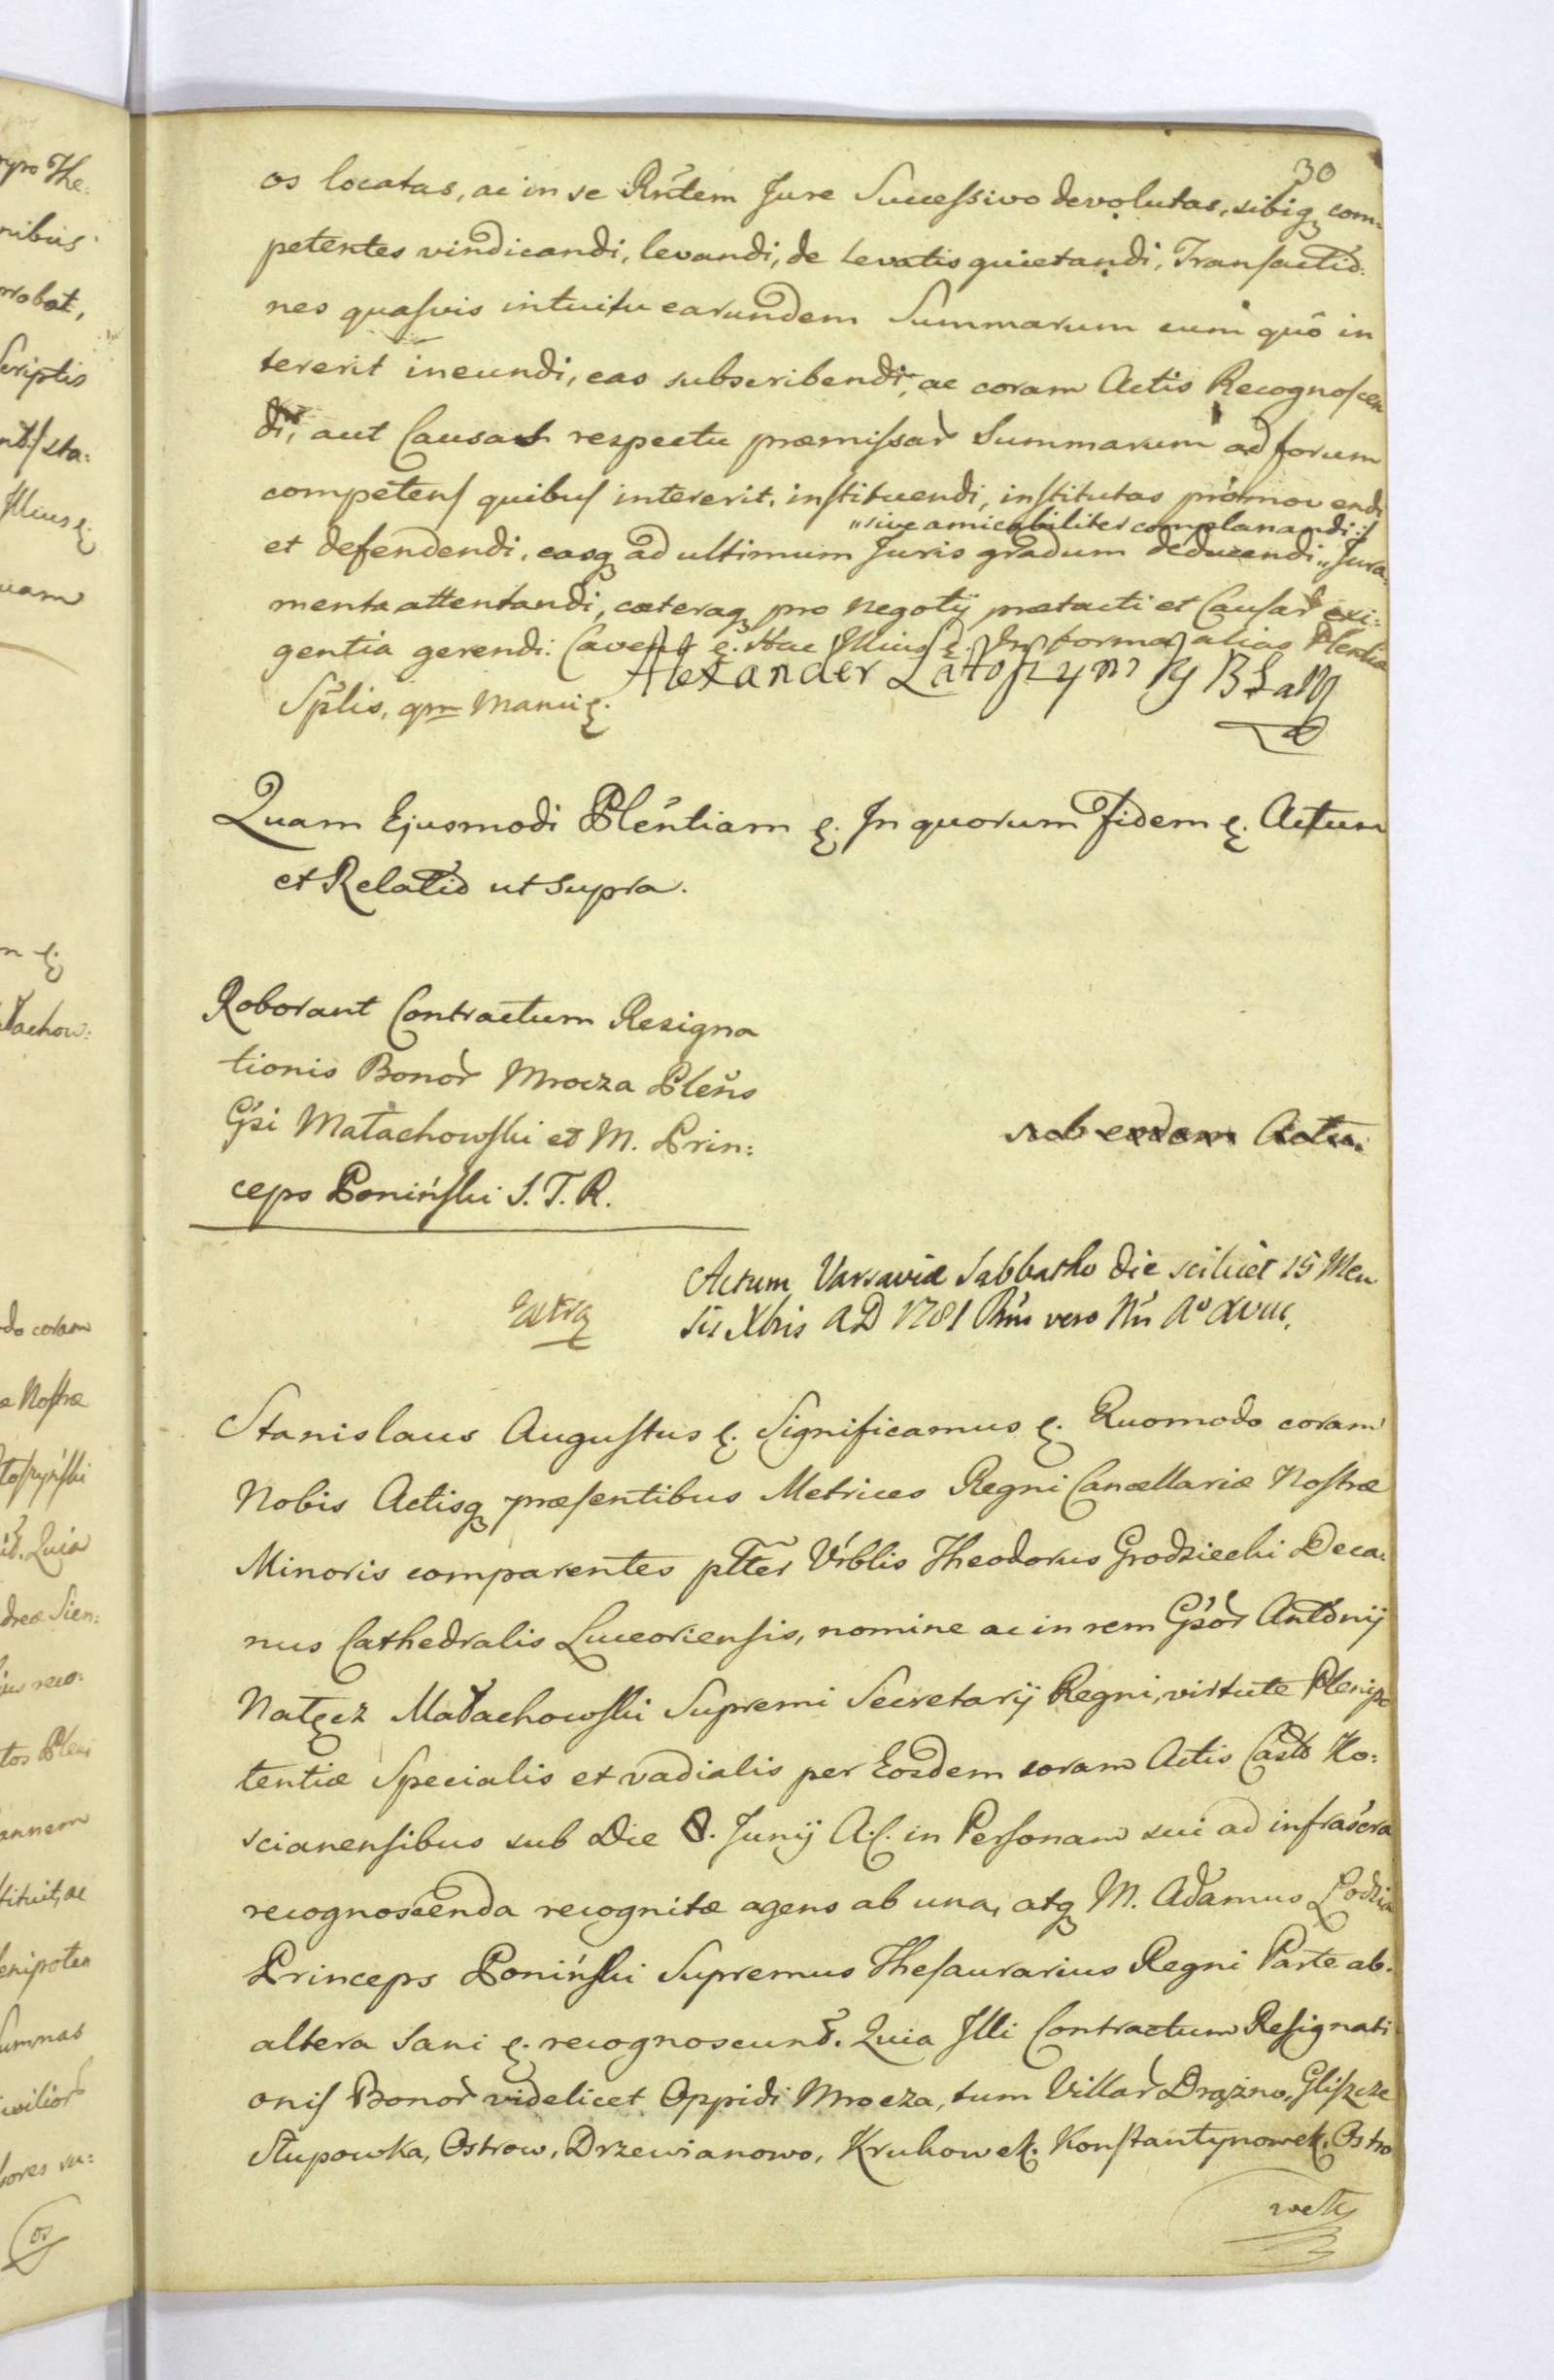 30
os locatas, ac in se Rñtem Jure Successivo devolutas, sibiq. com-
petentes vindicandi, levandi, de levatis quietandi, Transactio-
nes quasvis intuitu earundem Summarum cum quô in
tererit ineundi, eas subscribendi, ac coram Actis Recognoscen
di, aut Causas respectu præmissar Summarum ad forum
competens quibus intererit, instituendi, institutas promovendi
„sive amicabiliter complanandi:/
et defendendi, easq. ad ultimum Juris gradum deducendi „Jura-
menta attentandi, cæteraq. pro negotij prætacti et Causar exi:
gentia gerendi: Cavens &. Hac Illius &. In forma alias Plentia
Splis, qm Manu &.
Alexander Latoszynsky BŁaM
Quam Ejusmodi Pleñtiam &. In quorum Fidem &. Actum
et Relatio ut supra.
Roborant Contractum Resigna
tionis Bonor Mrocza Pleñs
Gsi Małachowski et M. Prin:
ceps Poniński S. T. R.
sub eodem Actu.
Actum Varsaviæ Sabbatho die scilicet 15 Men
sis Xbris AD 1781 Rñi vero Nri Aº XVIII.
Extra
Stanislaus Augustus &. Significamus &. Quomodo coram
Nobis Actisq. præsentibus Metrices Regni Cancellariæ Nostræ
Minoris comparentes pltter Vrblis Theodorus Grodziecki Deca:
nus Cathedralis Luceoriensis, nomine ac in rem Gsor Antonij
Nałęcz Małachowski Supremi Secretarij Regni, virtute Plenipo
tentiæ Specialis et vadialis per Eosdem coram Actis Castr Ko:
scianensibus sub Die 8. Junij A.C. in Personam sui ad infrascra
recognoscenda recognitæ agens ab una, atq. M. Adamus Łodzia
Princeps Poniński Supremus Thesaurarius Regni Parte ab
altera Sani &. recognoscunt. Quia Illi Contractum Resignati
onis Bonor videlicet Oppidi Mrocza, tum Villar Drążno, Gliszcze
Słupowka, Ostrow, Drzewianowo, Krukowek, Konstantynowek, Ostro
wek